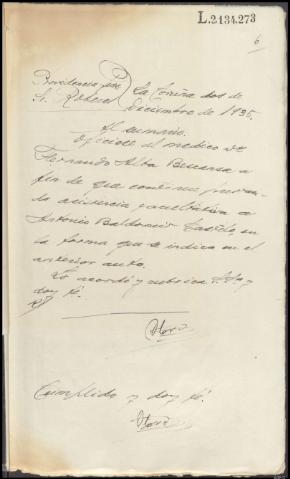 L.2134.273
6
Providencia Juez
Sr.
La Coruña dos de
Diciembre de 1935.
Al sumario.
Oficiese al medico de
Fernando Alba a
fin de que continue
la asistencia facultativa a
Antonio Baldomir en
la forma que se indica en el
anterior auto.
Lo acordó y rubrica S.Sª y
doy fé.
Cumplido y doy fé.